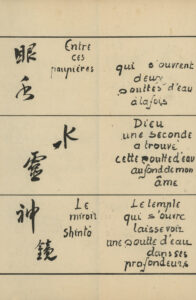 眼
Entre
ces
paupières
qui s'ouvrent
deux
gouttes d'eau
à la fois
水
靈
Dieu
une seconde
a trouvé
cette goutte d'eau
au fond de mon
âme
神
鏡
Le
miroir
shintô
Le temple
qui s'ouvre
laisse voir
une goutte d'eau
dans ses
profondeurs